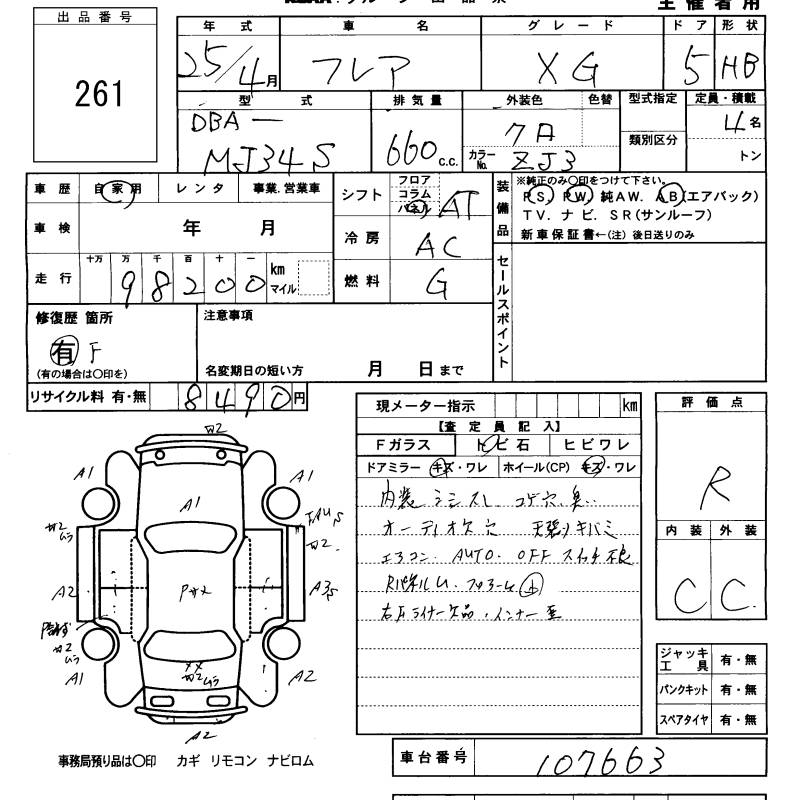 主 催 者 用
出 品 番 号
261
年 式 車 名 グ レ ー ド ド ア 形 状
25/4月 フレア XG 5 HB
型 式 排 気 量 外装色 色替 型式指定 定員・積載
DBA-
MJ34S 660 c.c. カラーNo. ZJ3 類別区分 4名
トン
車 歴 自 家 用 レ ン タ 事業.営業車
シフト フロア コラム パネル AT
装備品 ※純正のみ○印をつけて下さい。
PS. PW. 純AW. AB(エアバック)
TV. ナ ビ. SR(サンルーフ)
新 車 保 証 書←(注) 後日送りのみ
車 検 年 月
冷 房 AC
走 行 十万 万 千 百 十 一 km マイル
98200
燃 料 G
セールスポイント
修復歴 箇所
有 F
(有の場合は○印を)
注意事項
名変期日の短い方 月 日 まで
リサイクル料 有・無 8490円
現メーター指示 km
【査 定 員 記 入】
Fガラス ト ビ 石 ヒ ビ ワ レ
ドアミラー キズ・ワレ ホイール(CP) キズ・ワレ
内装
オーディオ穴
エアコン. AUTO. OFF スイッチ不良
評 価 点
R
内 装 外 装
C C
A1
A1
A1
A2
A2
A1
A2
A2
ジャッキ 工 具 有・無
パンクキット 有・無
スペアタイヤ 有・無
事務局預り品は○印 カギ リモコン ナビロム
車 台 番 号 107663